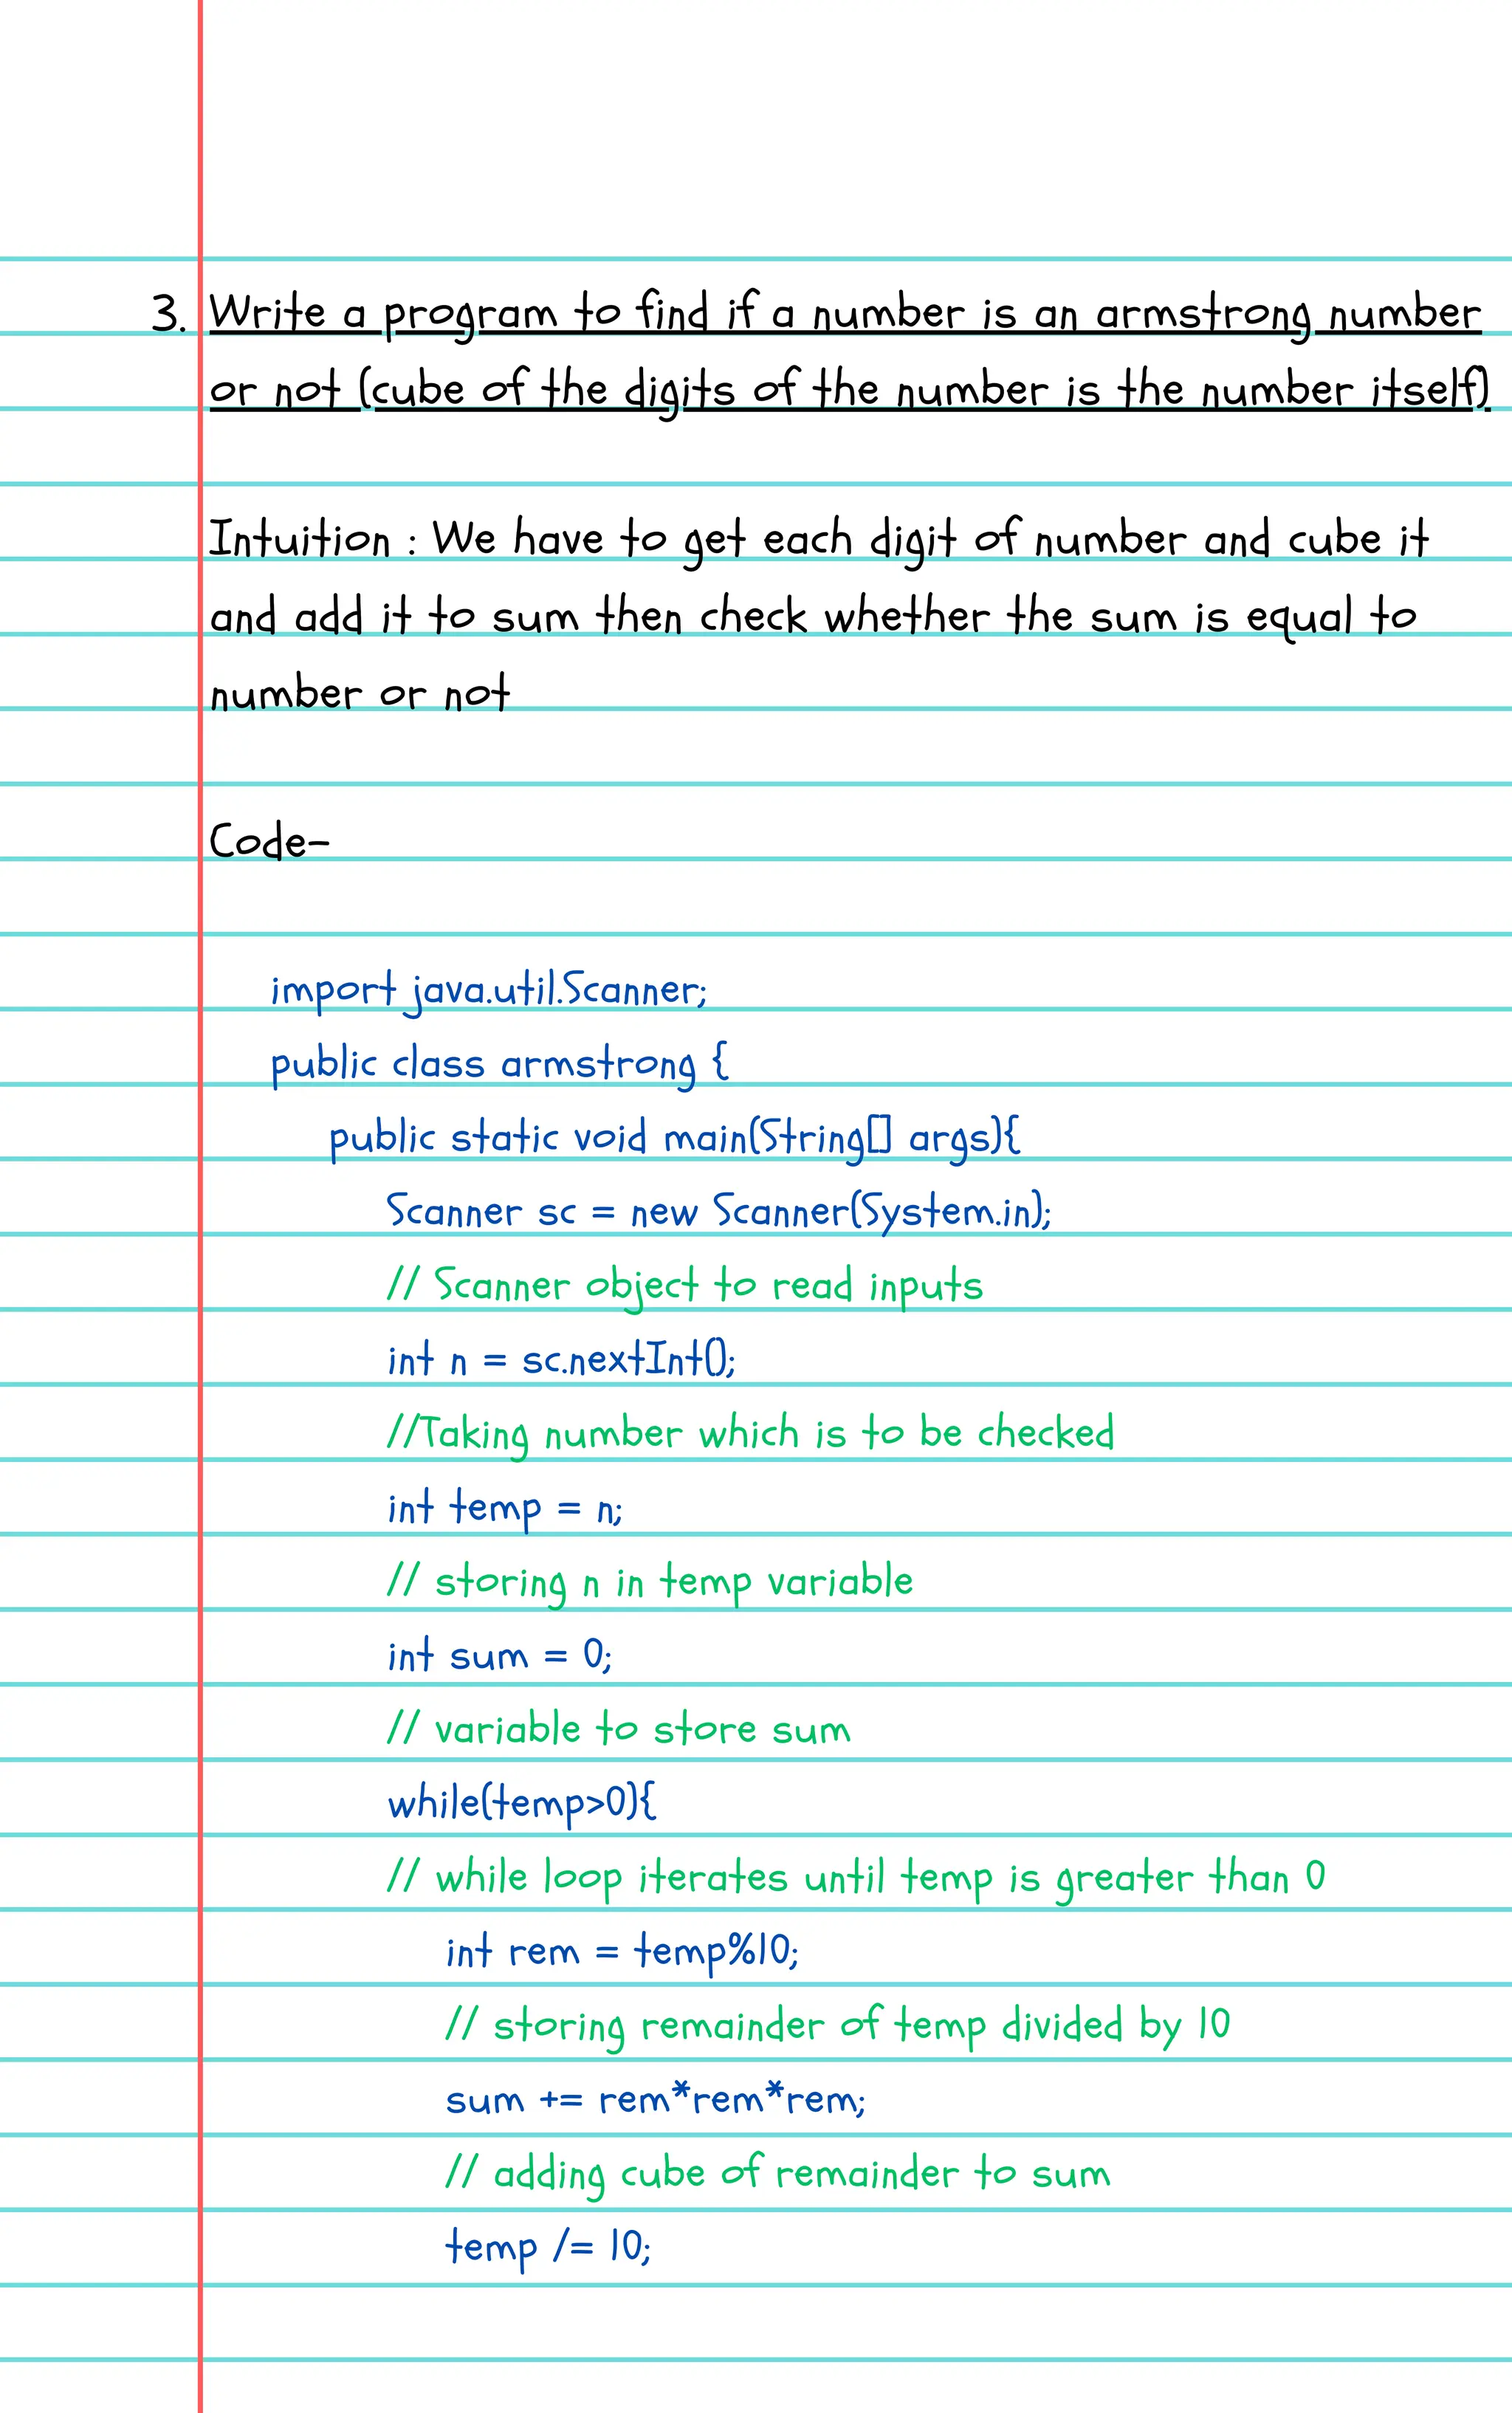 3. Write a program to find if a number is an armstrong number
or not (cube of the digits of the number is the number itself).
Intuition : We have to get each digit of number and cube it
and add it to sum then check whether the sum is equal to
number or not
Code-
import java.util.Scanner;
public class armstrong {
public static void main(String[] args){
Scanner sc = new Scanner(System.in);
// Scanner object to read inputs
int n = sc.nextInt();
//Taking number which is to be checked
int temp = n;
// storing n in temp variable
int sum = 0;
// variable to store sum
while(temp>0){
// while loop iterates until temp is greater than 0
int rem = temp%10;
// storing remainder of temp divided by 10
sum += rem*rem*rem;
// adding cube of remainder to sum
temp /= 10;